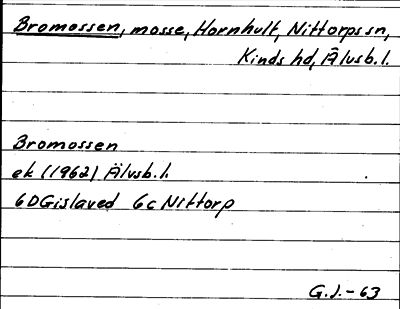 Bromossen, mosse, Hornhult, Nittorps sn,
Kinds hd, Älvsb. l.
Bromossen
ek (1962) Älvsb. l.
6D Gislaved 6c Nittorp
G.J. - 63